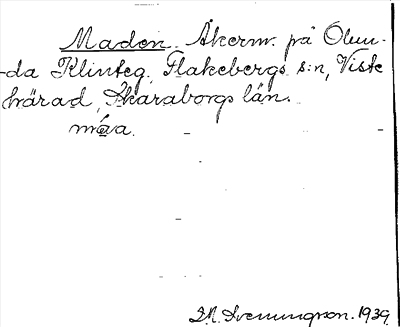 Maden. Åkerm. på Olun-
da Klinteg. Flakebergs s:n, Viste
härad, Skaraborgs län.
måa.
S.A. Svenungson. 1939